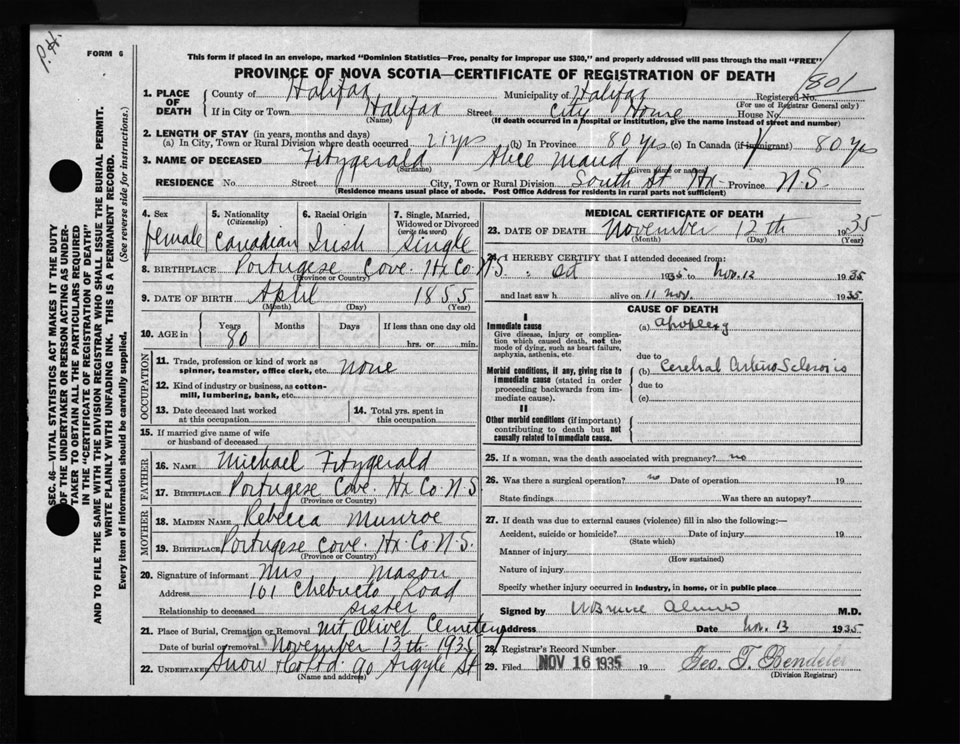 P.H.
FORM 6
This form if placed in an envelope, marked "Dominion Statistics—Free, penalty for improper use $300," and properly addressed will pass through the mail "FREE"
PROVINCE OF NOVA SCOTIA—CERTIFICATE OF REGISTRATION OF DEATH
801
1. PLACE OF DEATH
County of Halifax Municipality of Halifax Registered No.
(For use of Registrar General only)
If in City or Town Halifax Street City Home House No.
(Name) (If death occurred in a hospital or institution, give the name instead of street and number)
2. LENGTH OF STAY (in years, months and days)
(a) In City, Town or Rural Division where death occurred 2 yrs (b) In Province 80 yrs (c) In Canada (if immigrant) 80 yrs
3. NAME OF DECEASED Fitzgerald Alice Maud
(Surname) (Given name or names)
RESIDENCE No. Street City, Town or Rural Division South St Hx Province N.S.
(Residence means usual place of abode. Post Office Address for residents in rural parts not sufficient)
SEC. 46—VITAL STATISTICS ACT MAKES IT THE DUTY
OF THE UNDERTAKER OR PERSON ACTING AS UNDER-
TAKER TO OBTAIN ALL THE PARTICULARS REQUIRED
IN THE "CERTIFICATE OF REGISTRATION OF DEATH"
AND TO FILE THE SAME WITH THE DIVISION REGISTRAR WHO SHALL ISSUE THE BURIAL PERMIT.
WRITE PLAINLY WITH UNFADING INK. THIS IS A PERMANENT RECORD.
Every item of information should be carefully supplied. (See reverse side for instructions.)
4. Sex female
5. Nationality (Citizenship) Canadian
6. Racial Origin Irish
7. Single, Married, Widowed or Divorced (write the word) Single
8. BIRTHPLACE Portugese Cove. Hx Co. N.S.
(Province or Country)
9. DATE OF BIRTH April 1855
(Month) (Day) (Year)
10. AGE in Years 80 Months Days If less than one day old
hrs. or min.
OCCUPATION
11. Trade, profession or kind of work as
spinner, teamster, office clerk, etc. none
12. Kind of industry or business, as cotton-
mill, lumbering, bank, etc.
13. Date deceased last worked
at this occupation
14. Total yrs. spent in
this occupation
15. If married give name of wife
or husband of deceased
FATHER
16. NAME Michael Fitzgerald
17. BIRTHPLACE Portugese Cove. Hx Co N.S.
(Province or Country)
MOTHER
18. MAIDEN NAME Rebecca Munroe
19. BIRTHPLACE Portugese Cove. Hx Co N.S.
(Province or Country)
20. Signature of informant Mrs Mason
Address 101 Chebucto Road
Relationship to deceased sister
21. Place of Burial, Cremation or Removal Mt Olivet Cemetery
Date of burial or removal November 13th 1935
22. UNDERTAKER Snow & Co Ltd. 90 Argyle St
(Name and address)
MEDICAL CERTIFICATE OF DEATH
23. DATE OF DEATH November 12th 1935
(Month) (Day) (Year)
24. I HEREBY CERTIFY that I attended deceased from:
1935 to Nov. 12 1935
and last saw h alive on 11 Nov. 1935
CAUSE OF DEATH
I
Immediate cause
Give disease, injury or complica-
tion which caused death, not the
mode of dying, such as heart failure,
asphyxia, asthenia, etc.
(a) apoplexy
due to
Morbid conditions, if any, giving rise to
immediate cause (stated in order
proceeding backwards from im-
mediate cause).
(b) Cerebral Arterio Sclerosis
due to
(c)
II
Other morbid conditions (if important)
contributing to death but not
causally related to immediate cause.
25. If a woman, was the death associated with pregnancy? no
26. Was there a surgical operation? no Date of operation 19
State findings Was there an autopsy?
27. If death was due to external causes (violence) fill in also the following:—
Accident, suicide or homicide? Date of injury 19
(State which)
Manner of injury
(How sustained)
Nature of injury
Specify whether injury occurred in industry, in home, or in public place
Signed by M.D.
Address Date Nov. 13 1935
28. Registrar's Record Number
29. Filed NOV 16 1935 19 Geo. T. Bendeler
(Division Registrar)